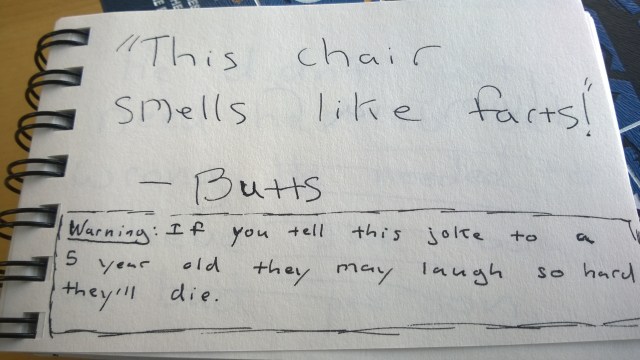 "This chair
smells like farts!"
- Butts
Warning: If you tell this joke to a
5 year old they may laugh so hard
they'll die.